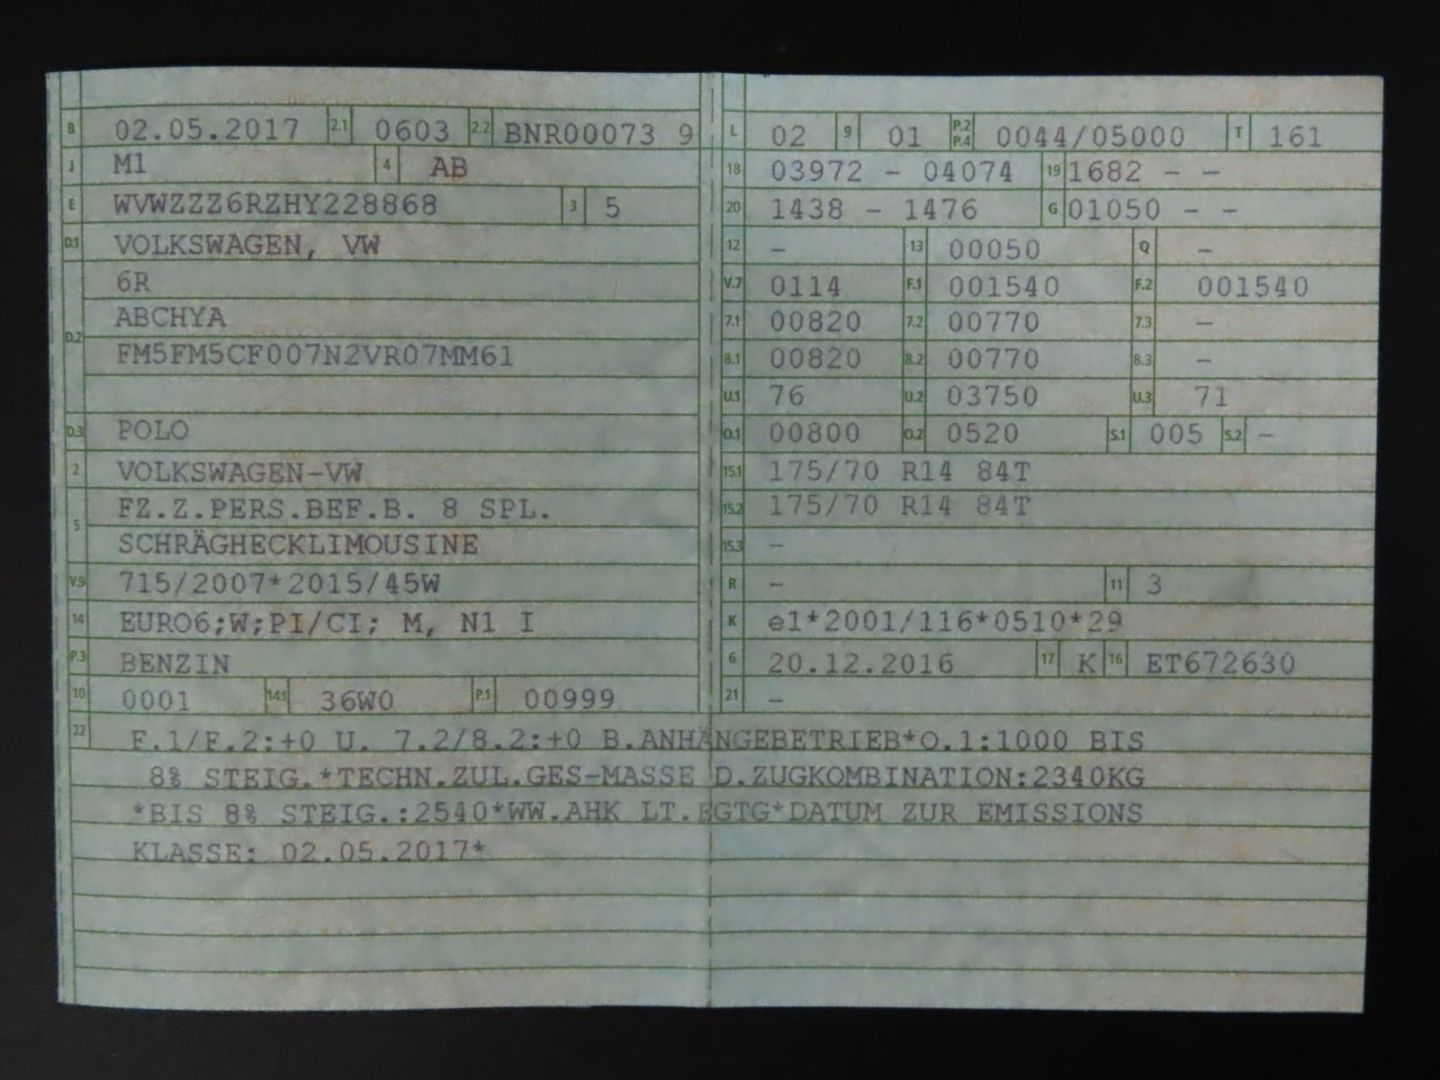 B 02.05.2017 2.1 0603 2.2 BNR00073 9
J M1 4 AB
E WVWZZZ6RZHY228868 3 5
D.1 VOLKSWAGEN, VW
6R
ABCHYA
D.2
FM5FM5CF007N2VR07MM61
D.3 POLO
2 VOLKSWAGEN-VW
FZ.Z.PERS.BEF.B. 8 SPL.
5
SCHRÄGHECKLIMOUSINE
V.9 715/2007*2015/45W
14 EURO6;W;PI/CI; M, N1 I
P.3 BENZIN
10 0001 14.1 36W0 P.1 00999
L 02 9 01 P.2 P.4 0044/05000 T 161
18 03972 - 04074 19 1682 - -
20 1438 - 1476 G 01050 - -
12 - 13 00050 Q -
V.7 0114 F.1 001540 F.2 001540
7.1 00820 7.2 00770 7.3 -
8.1 00820 8.2 00770 8.3 -
U.1 76 U.2 03750 U.3 71
O.1 00800 O.2 0520 S.1 005 S.2 -
15.1 175/70 R14 84T
15.2 175/70 R14 84T
15.3 -
R - 11 3
K e1*2001/116*0510*29
6 20.12.2016 17 K 16 ET672630
21 -
22 F.1/F.2:+0 U. 7.2/8.2:+0 B.ANHÄNGEBETRIEB*O.1:1000 BIS
8% STEIG.*TECHN.ZUL.GES-MASSE D.ZUGKOMBINATION:2340KG
*BIS 8% STEIG.:2540*WW.AHK LT.EGTG*DATUM ZUR EMISSIONS
KLASSE: 02.05.2017*